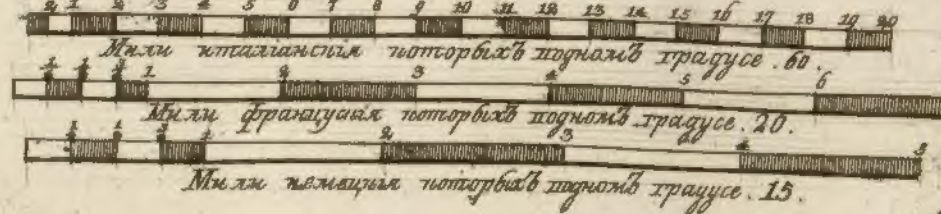 2 1 2 3 4 5 6 7 8 9 10 11 12 13 14 15 16 17 18 19 20
Мили италианскія которыхъ водномъ градусе . 60.
1 2 3 4 5 6
Мили француская которыхъ водномъ градусе . 20.
1 2 3 4 5
Мили немецкія которыхъ водномъ градусе . 15.